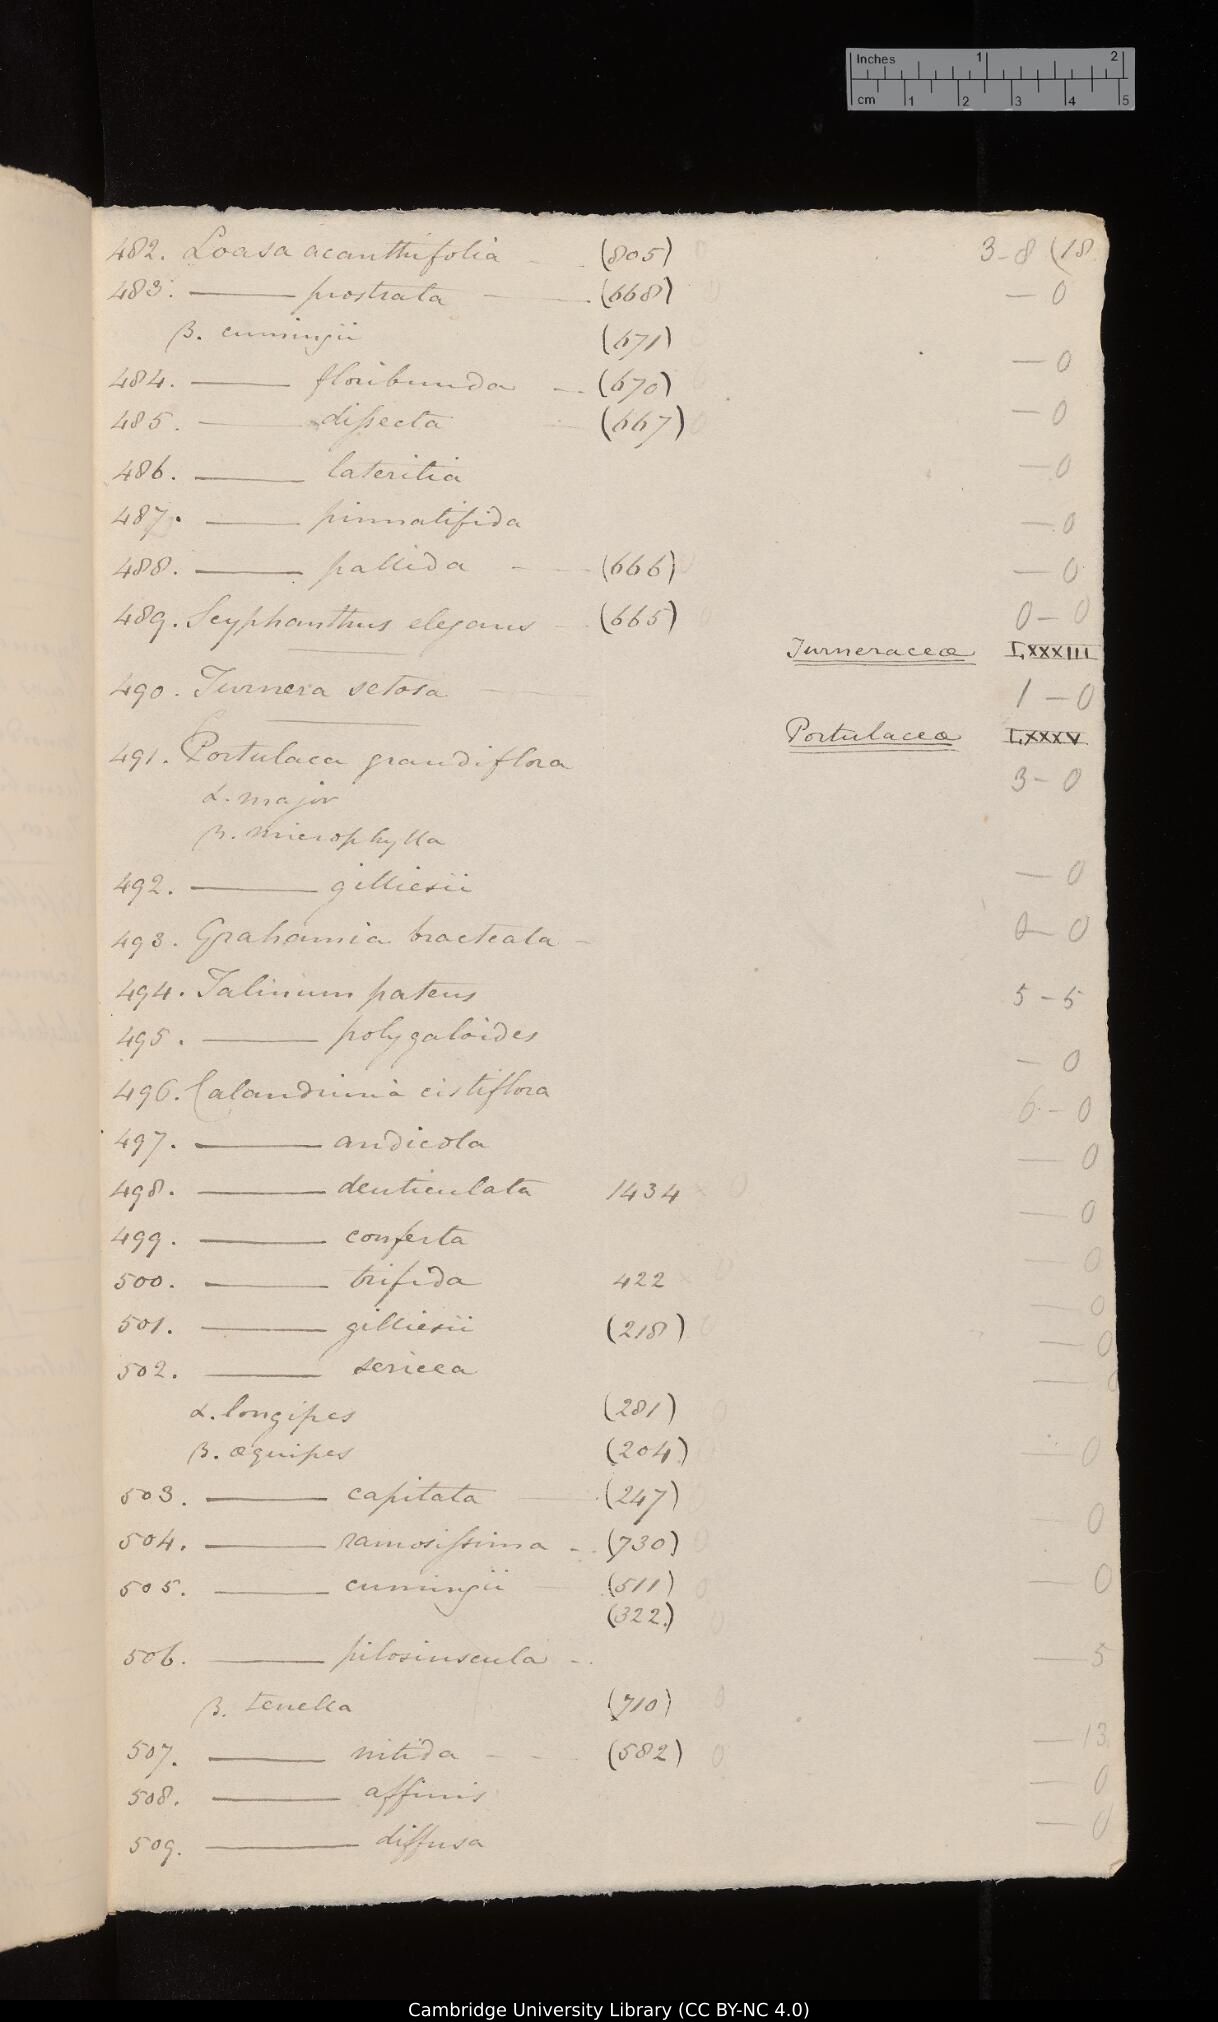 Inches 1 2
cm 1 2 3 4 5
482. Loasa acanthifolia (805) 0 3-8 (18
483. —— prostrata —— (668) 0 — 0
β. cumingii (671) 0
484. —— floribunda — (670) 0 — 0
485. —— dissecta — (667) 0 — 0
486. —— lateritia — 0
487. —— pinnatifida — 0
488. —— pallida — (666) 0 — 0
489. Scyphanthus elegans — (665) 0 0 — 0
Turneraceæ LXXXIII
490. Turnera setosa — 1 — 0
Portulaceæ LXXXV
491. Portulaca grandiflora 3 — 0
α. major
β. microphylla
492. —— gilliesii — 0
493. Grahamia bracteata — 0 — 0
494. Talinum patens 5 — 5
495. —— polygaloides — 0
496. Calandrinia cistiflora 6 — 0
497. —— andicola — 0
498. —— denticulata 1434 × 0 — 0
499. —— conferta — 0
500. —— trifida 422 × 0 — 0
501. —— gilliesii (218) 0 — 0
502. —— sericea —
α. longipes (281) 0
β. æquipes (204) 0 — 0
503. —— capitata — (247) 0 — 0
504. —— ramosissima — (730) 0
505. —— cumingii — (511) 0 — 0
(322) 0
506. —— pilosiuscula — — 5
β. tenella (710) 0
507. —— nitida — (582) 0 — 13
508. —— affinis — 0
509. —— diffusa — 0
Cambridge University Library (CC BY-NC 4.0)